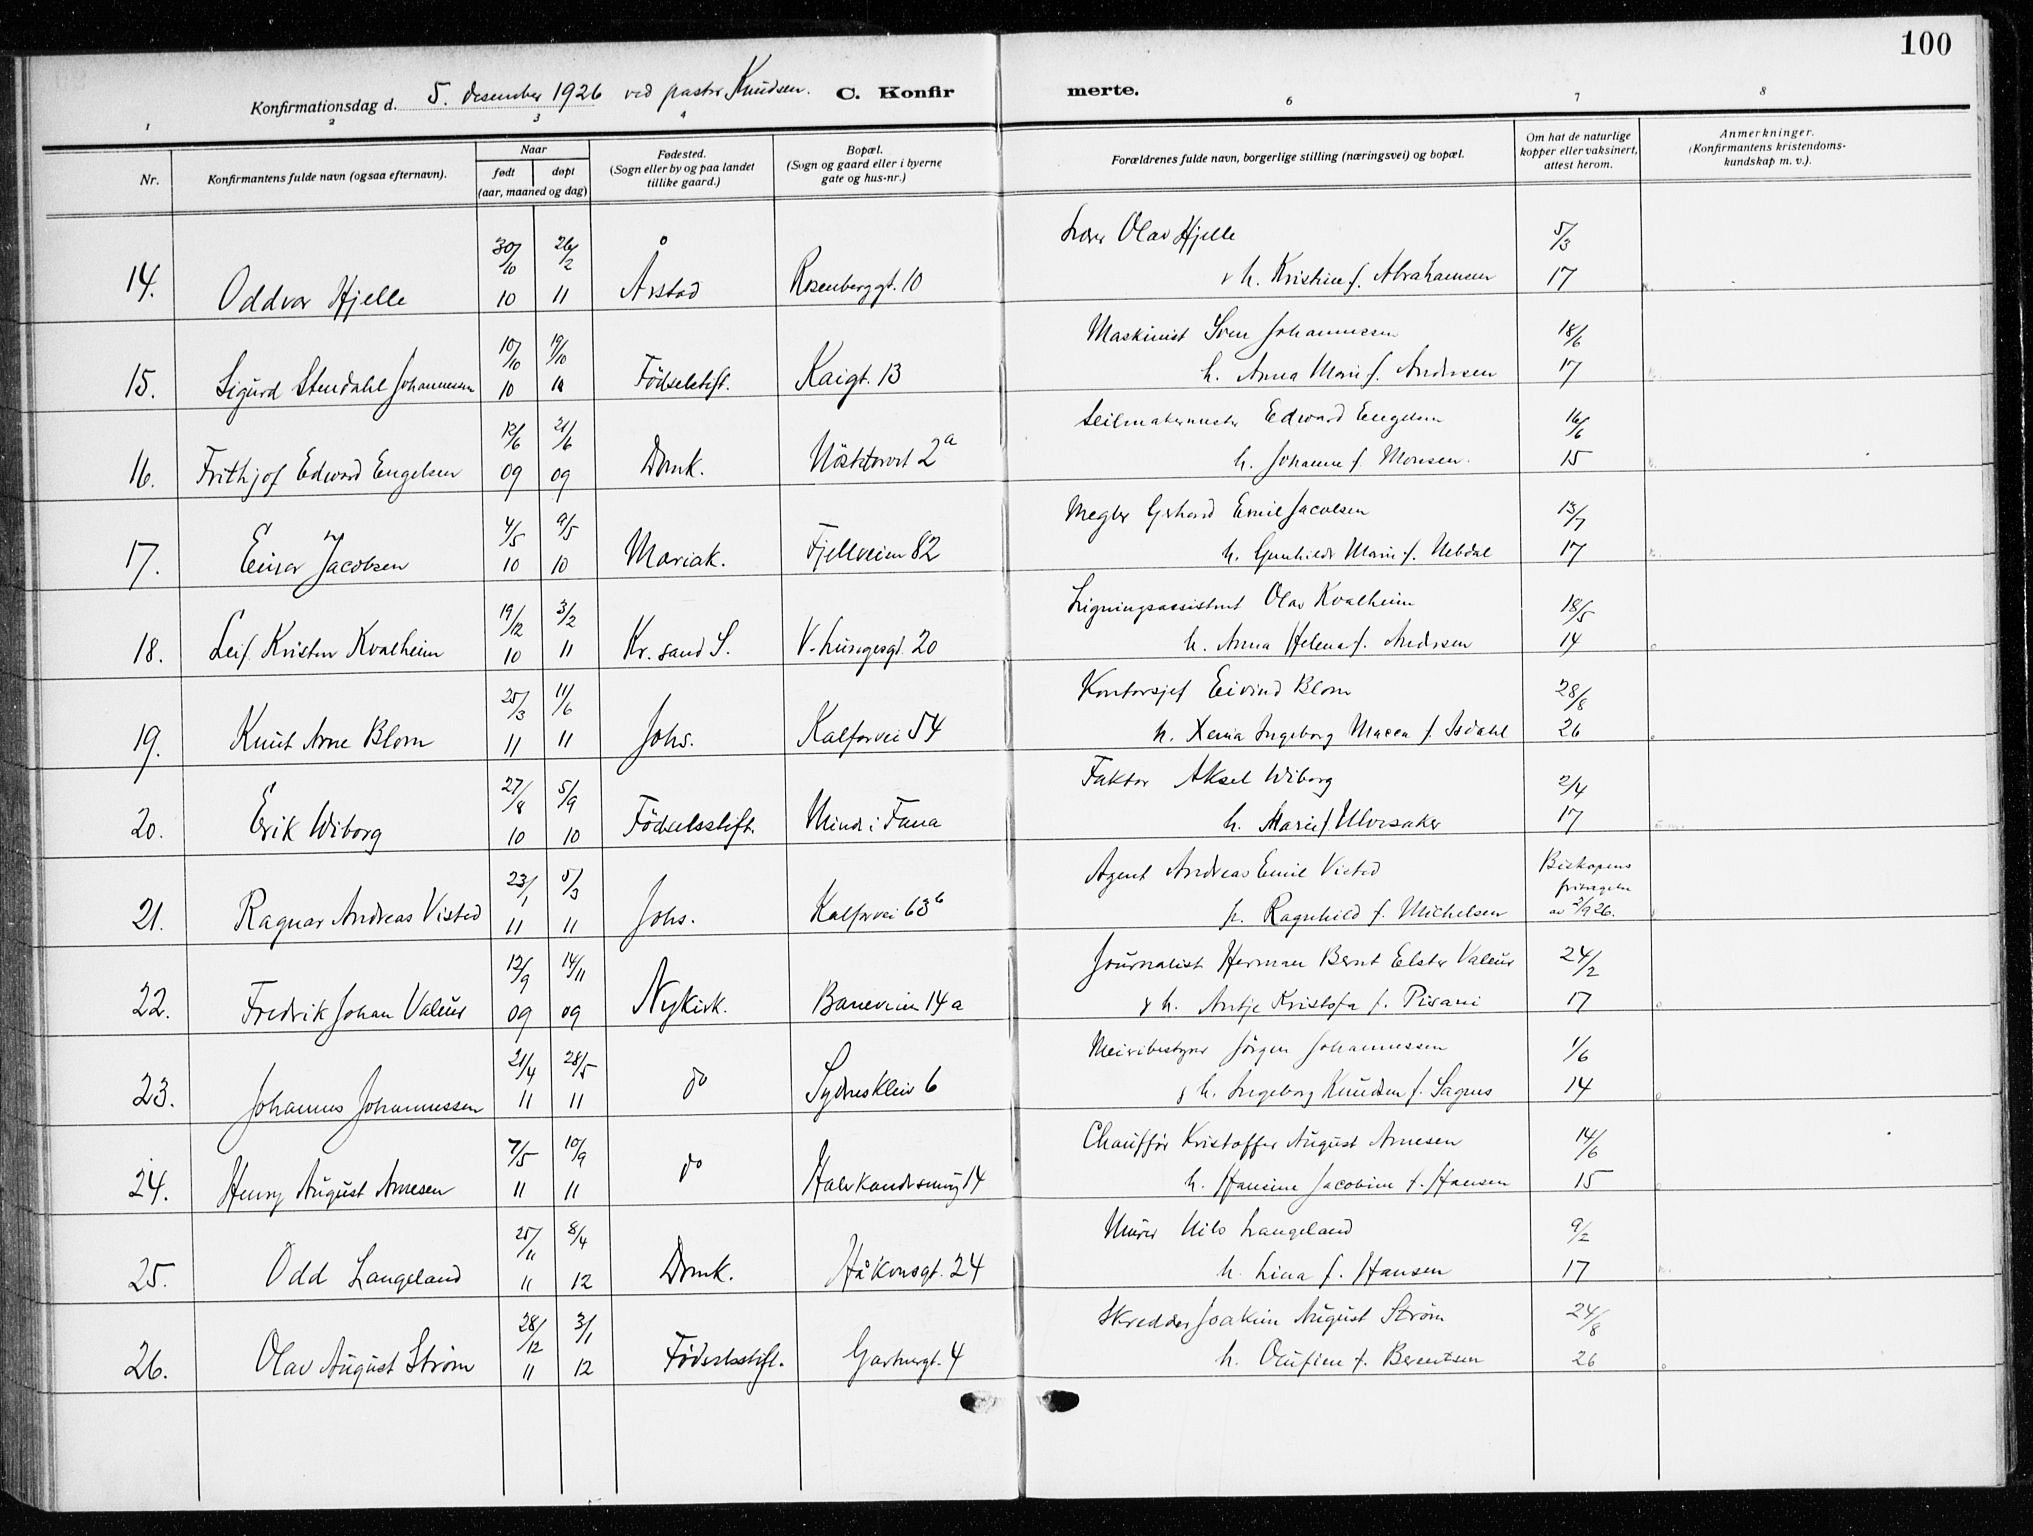 100
Konfirmationsdag d. 5. desember 1926 ved pastor Knudsen. C. Konfir merte.
1 2 3 4 6 7 8
Nr. Konfirmantens fulde navn (ogsaa efternavn). Naar født døpt (aar, maaned og dag) Fødested. (Sogn eller by og paa landet tillike gaard.) Bopæl. (Sogn og gaard eller i byerne gate og hus-nr.) Forældrenes fulde navn, borgerlige stilling (næringsvei) og bopæl. Om hat de naturlige kopper eller vaksinert, attest herom. Anmerkninger. (Konfirmantens kristendoms-kundskap m. v.).
30/10 26/2 Lærer Olav Hjelle 5/3
14. Oddvar Hjelle 10 11 Årstad Rosenberggt. 10 & h. Kristine f. Abrahamsen 17
10/10 19/10 Maskinist Sven Johannessen 18/6
15. Sigurd Stendahl Johannessen 10 10 Födselsstift. Kaigt. 13 h. Anna Marie f. Andersen 17
12/6 21/6 Seilmakermester Edward Engelsen 16/6
16. Frithjof Edward Engelsen 09 09 Domk. Nöstetorvet 2a h. Johanne f. Monsen. 15
4/5 9/5 Megler Gerhard Emil Jacobsen 13/7
17. Einar Jacobsen 10 10 Mariak. Fjellveien 82 h. Gunhilde Marie f. Nebdal 17
19/12 3/2 Ligningsassistent Olav Kvalheim 18/5
18. Leif Krister Kvalheim 10 11 Kr.sand S. V. Lungegt. 20 h. Anna Helena f. Andersen 14
25/3 11/6 Kontorsjef Eivind Blom 28/8
19. Knut Arne Blom 11 11 Johs. Kalfarvei 54 h. Xenia Ingeborg Macca f. Isdahl 26
27/8 5/9 Faktor Aksel Wiborg 2/4
20. Erik Wiborg 10 10 Födselsstift. Minde i Fana h. Marie f. Ulvesaker 17
23/1 5/3 Agent Andreas Emil Visted Biskopens fritagelse
21. Ragnar Andreas Visted 11 11 Johs. Kalfarvei 63b h. Ragnhild f. Michelsen av 2/9 26.
12/9 14/11 Journalist Herman Bernt Elster Valeur 24/2
22. Fredrik Johan Valeur 09 09 Nykirk. Baneveien 14a & h. Antje Kristofa f. Pisani 17
21/4 28/5 Meieribestyrer Jörgen Johannessen 1/6
23. Johannes Johannessen 11 11 do Sydneskleiv 6 & h. Ingeborg Knudsen f. Sagnes 14
7/5 10/9 Chauffør Kristoffer August Arnesen 14/6
24. Henry August Arnesen 11 11 do Halvkandesmug 14 h. Hansine Jacobine f. Hansen 15
25/11 8/4 Murer Nils Langeland 9/2
25. Odd Langeland 11 12 Domk. Håkonsgt. 24 h. Lina f. Hansen 17
28/12 3/1 Skredder Joakim August Strøm 24/8
26. Olav August Strøm 11 12 Födselsstift. Gartnergt. 4 h. Olufine f. Berentsen 26